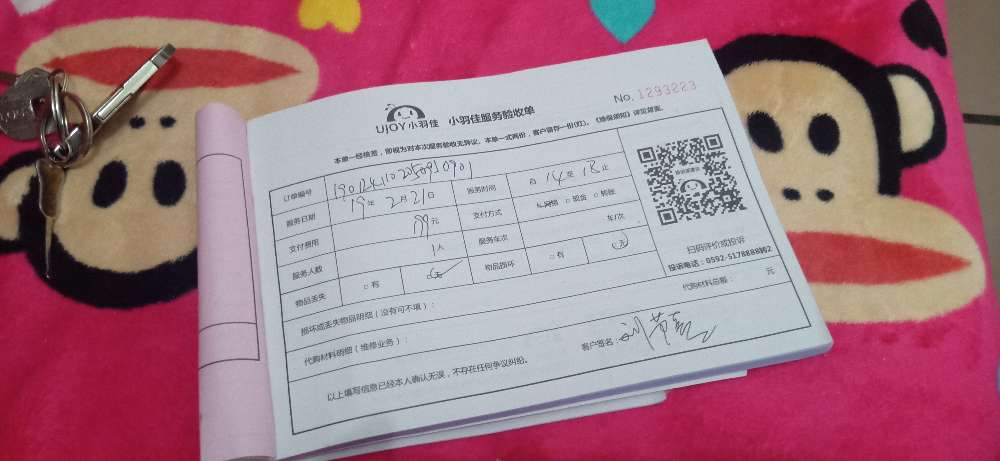 UJOY小羽佳 小羽佳服务验收单 No. 1293223
本单一经核签，即视为对本次服务验收无异议。本单一式两份，客户留存一份(红)。《维保须知》详见背面。
订单编号
服务日期 19年 2月21日 服务时间 自 14 至 18 止
支付费用 元 支付方式 网络 □ 现金 □ 转账
服务人数 1人 服务车次 车/次
物品丢失 □ 有 □无 物品损坏 □ 有 无
扫码评价或投诉
投诉电话：0592-5178888862
损坏或丢失物品明细（没有可不填）：
代购材料明细（维修业务）： 代购材料总额： 元
以上填写信息已经本人确认无误，不存在任何争议纠纷。 客户签名：